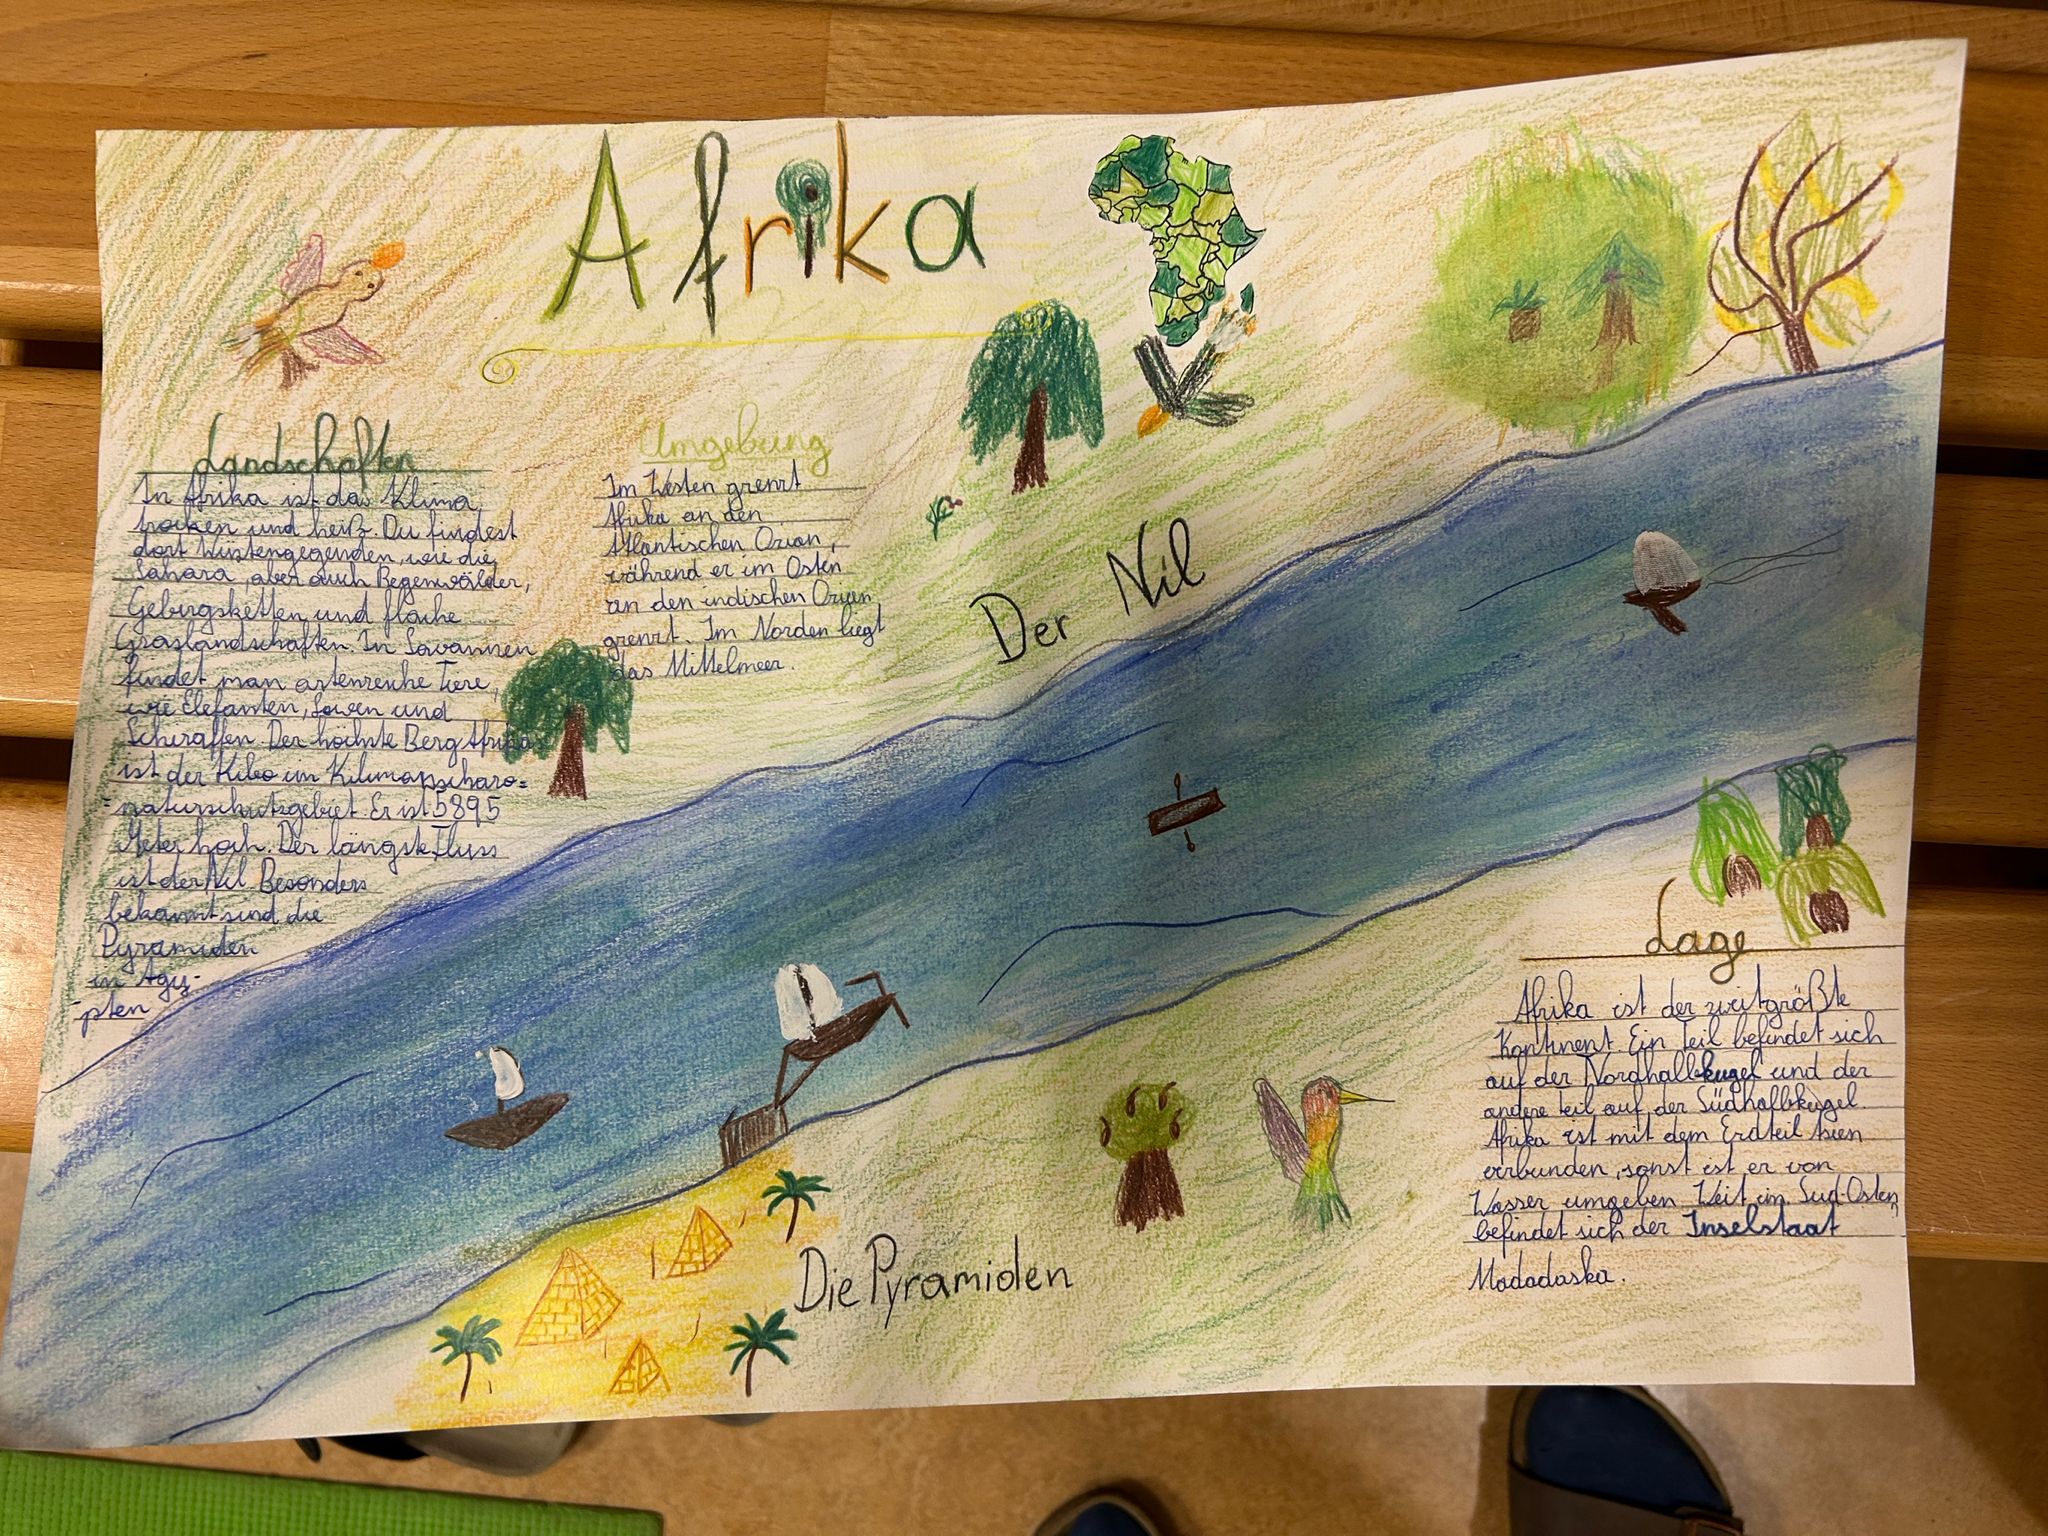 Afrika
Landschaften
In Afrika ist das Klima
trocken und heiß. Du findest
dort Wüstengegenden, wie die
Sahara, aber auch Regenwälder,
Gebirgsketten und flache
Graslandschaften. In Savannen
findet man artenreiche Tiere,
wie Elefanten, Löwen und
Schiraffen. Der höchste Berg Afrikas
ist der Kibo im Kilimanscharo=
=naturschutzgebiet. Er ist 5895
Meter hoch. Der längste Fluss
ist der Nil. Besonders
bekannt sind die
Pyramiden
in Ägy-
-pten
Umgebung
Im Westen grenzt
Afrika an den
Atlantischen Ozean,
während er im Osten
an den indischen Ozean
grenzt. Im Norden liegt
das Mittelmeer.
Der Nil
Die Pyramiden
Lage
Afrika ist der zweitgrößte
Kontinent. Ein Teil befindet sich
auf der Nordhalbkugel und der
andere Teil auf der Südhalbkugel.
Afrika ist mit dem Erdteil Asien
verbunden, sonst ist er von
Wasser umgeben. Weit im Süd-Osten
befindet sich der Inselstaat
Madadaska.